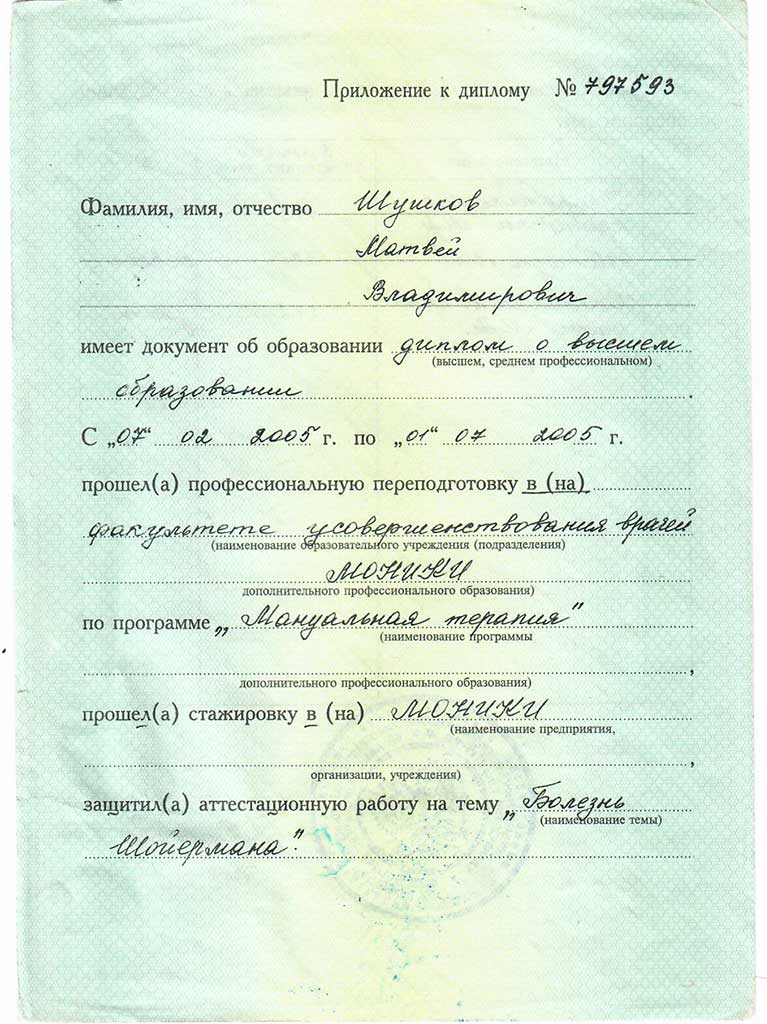 Приложение к диплому № 797593
Фамилия, имя, отчество Шушков
Матвей
Владимирович
имеет документ об образовании диплом о высшем
(высшем, среднем профессиональном)
образовании.
С „07“ 02 2005 г. по „01“ 07 2005 г.
прошел(а) профессиональную переподготовку в (на)
факультете усовершенствования врачей
(наименование образовательного учреждения (подразделения)
МОНИКИ
дополнительного профессионального образования)
по программе „Мануальная терапия"
(наименование программы
,
дополнительного профессионального образования)
прошел(а) стажировку в (на) МОНИКИ
(наименование предприятия,
,
организации, учреждения)
защитил(а) аттестационную работу на тему „Болезнь
(наименование темы)
Шойермана".